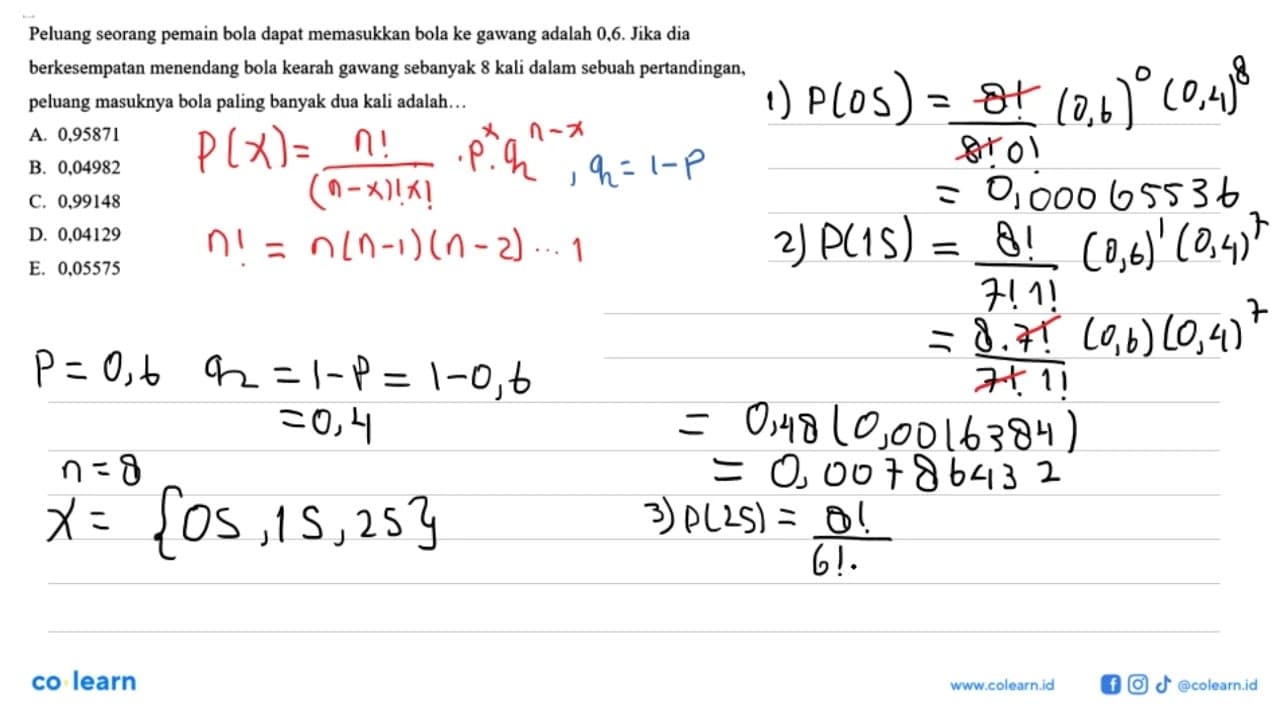 Peluang seorang pemain bola dapat memasukkan bola ke gawang adalah 0,6. Jika dia
berkesempatan menendang bola kearah gawang sebanyak 8 kali dalam sebuah pertandingan,
peluang masuknya bola paling banyak dua kali adalah…
A. 0,95871
B. 0,04982
C. 0,99148
D. 0,04129
E. 0,05575
P(x) = n! / (n-x)!x! . p^x . q^(n-x) , q = 1-p
n! = n(n-1)(n-2) ... 1
P = 0,6 q = 1-P = 1-0,6
= 0,4
n = 8
x = {0S, 1S, 2S}
1) P(0S) = 8! / 8! 0! (0,6)^0 (0,4)^8
= 0,00065536
2) P(1S) = 8! / 7! 1! (0,6)^1 (0,4)^7
= 8.7! / 7! 1! (0,6)(0,4)^7
= 0,48 (0,0016384)
= 0,00786432
3) P(2S) = 8! / 6!.
co learn
www.colearn.id
@colearn.id